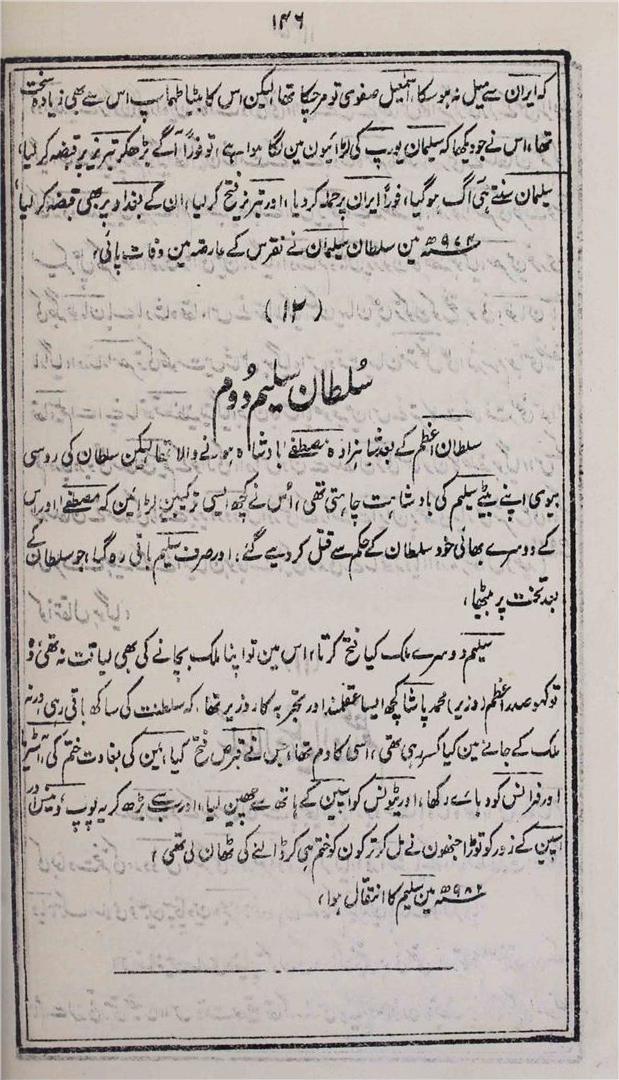 ۱۴۶
کہ ایران سے میل نہ ہوسکا، اسمٰعیل صفوی تو مرچکا تھا، لیکن اس کا بیٹا طہماسپ اس سے بھی زیادہ سخت
تھا، اس نے جو دیکھا کہ سلیمان یورپ کی لڑائیون مین لگا ہوا ہے، تو فوراً آگے بڑھکر تبریز پر قبضہ کر لیا،
سلیمان سنتے ہی آگ ہوگیا، فوراً ایران پر حملہ کر دیا، اور تبریز فتح کر لیا، ان کے بغداد پر بھی قبضہ کر لیا،
۹۷۴ھ مین سلطان سلیمان نے نقرس کے عارضہ مین وفات پائی،
(۱۲)
سُلطان سلیم دُوم
سلطان اعظم کے بعد شاہزادہ مصطفےٰ بادشاہ ہونے والا تھا لیکن سلطان کی روسی
بیوی اپنے بیٹے سلیم کی بادشاہت چاہتی تھی، اُس نے کچھ ایسی ترکیبین لڑائین کہ مصطفےٰ اور اس
کے دوسرے بھائی خود سلطان کے حکم سے قتل کر دیے گئے، اور صرف سلیم باقی رہ گیا، جو سلطان کے
بعد تخت پر بیٹھا،
سلیم دوسرے ملک کیا فتح کرتا، اس مین تو اپنا ملک بچانے کی بھی لیاقت نہ تھی، وہ
تو کہو صدر اعظم (وزیر) محمد پاشا کچھ ایسا عقلمند اور تجربہ کار وزیر تھا، کہ سلطنت کی ساکھ باقی رہی، ورنہ
ملک کے جانے مین کیا کسر رہی تھی، اسی کا دم تھا، جس نے قبرص فتح کیا، یمن کی بغاوت ختم کی، آسٹریا
اور فرانس کو دبائے رکھا، اور ٹیونس کو اسپین کے ہاتھ سے چھین لیا، اور سب سے بڑھ کر یہ پوپ، وینس اور
اسپین کے زور کو توڑا جنھون نے مل کر ترکون کو ختم ہی کر ڈالنے کی ٹھان لی تھی،
۹۸۲ھ مین سلیم کا انتقال ہوا،